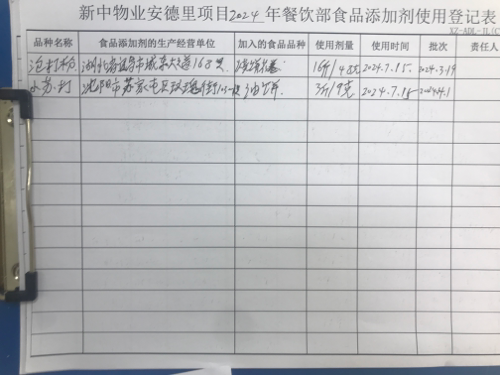 新中物业安德里项目2024年餐饮部食品添加剂使用登记表
XZ-ADL-JL(C
品种名称 食品添加剂的生产经营单位 加入的食品品种 使用剂量 使用时间 批次 责任
泡打粉 湖北省宜昌市城东大道168号 16斤/48克 2024.7.15. 2024.3.19
小苏打 沈阳市苏家屯区玫瑰街 油饼 3斤/9克 2024.7.15